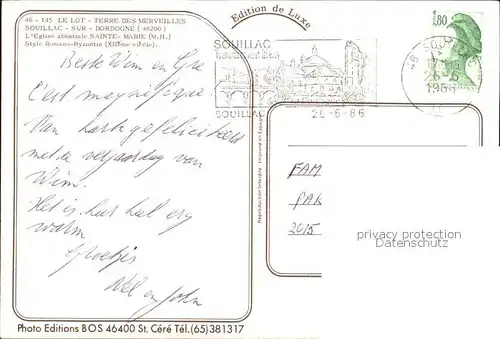 46 - 145 LE LOT - TERRE DES MERVEILLES
SOUILLAC - SUR - DORDOGNE (46200)
L'Eglise abbatiale SAINTE-MARIE (M.H.)
Style Romano-Byzantin (XIIème siècle).
Edition de Luxe
SOUILLAC
SOUILLAC
26-6-86
1,80
46 SOUILLAC
26-6
1986
Beste Wim en Gre
C'est magnifique
Van harte gefeliciteerd
met de verjaardag van
Wim.
Het is hier heel erg
warm
Groetjes
Nel en John
Reproduction Interdite
FAM
PAR
2015
privacy protection
Datenschutz
Photo Editions BOS 46400 St. Céré Tél.(65)381317